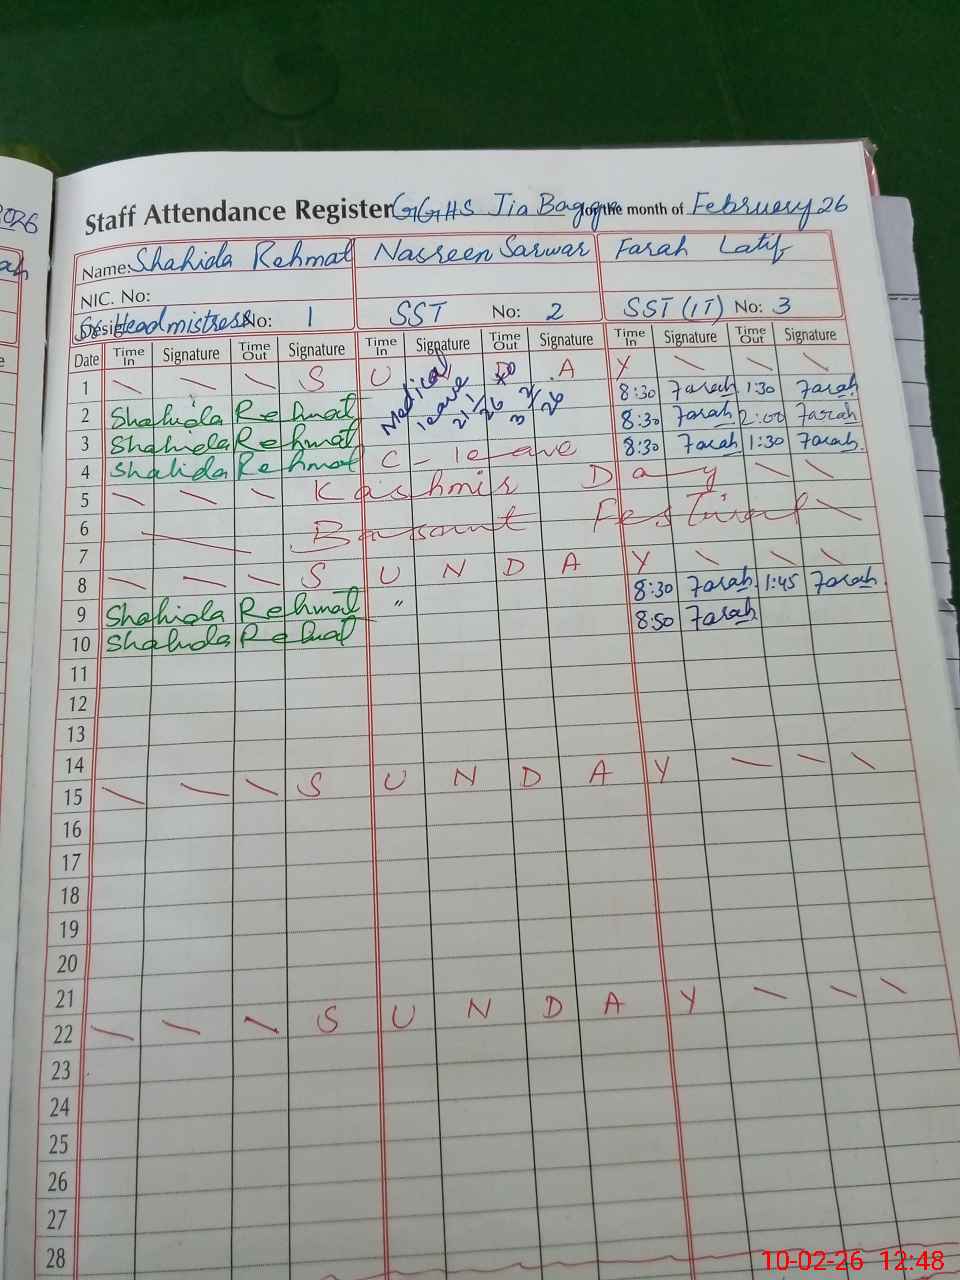 2026
Staff Attendance Register GGHS Jia Bagga for the month of February 26
Name: Shahida Rehmat Nasreen Sarwar Farah Latif
NIC. No:
Sr. Headmistress No: 1 SST No: 2 SST (IT) No: 3
Date Time In Signature Time Out Signature Time In Signature Time Out Signature Time In Signature Time Out Signature
1 S U N D A Y
2 Shahida Rehmat Medical leave 21/1/26 to 3/2/26 8:30 Farah 1:30 Farah
3 Shahida Rehmat 8:30 Farah 2:00 Farah
4 Shahida Rehmat C - leave 8:30 Farah 1:30 Farah
5 Kashmir Day
6 Basant Festival
7
8 S U N D A Y
9 Shahida Rehmat " 8:30 Farah 1:45 Farah
10 Shahida Rehmat 8:50 Farah
11
12
13
14
15 S U N D A Y
16
17
18
19
20
21
22 S U N D A Y
23
24
25
26
27
28
10-02-26 12:48